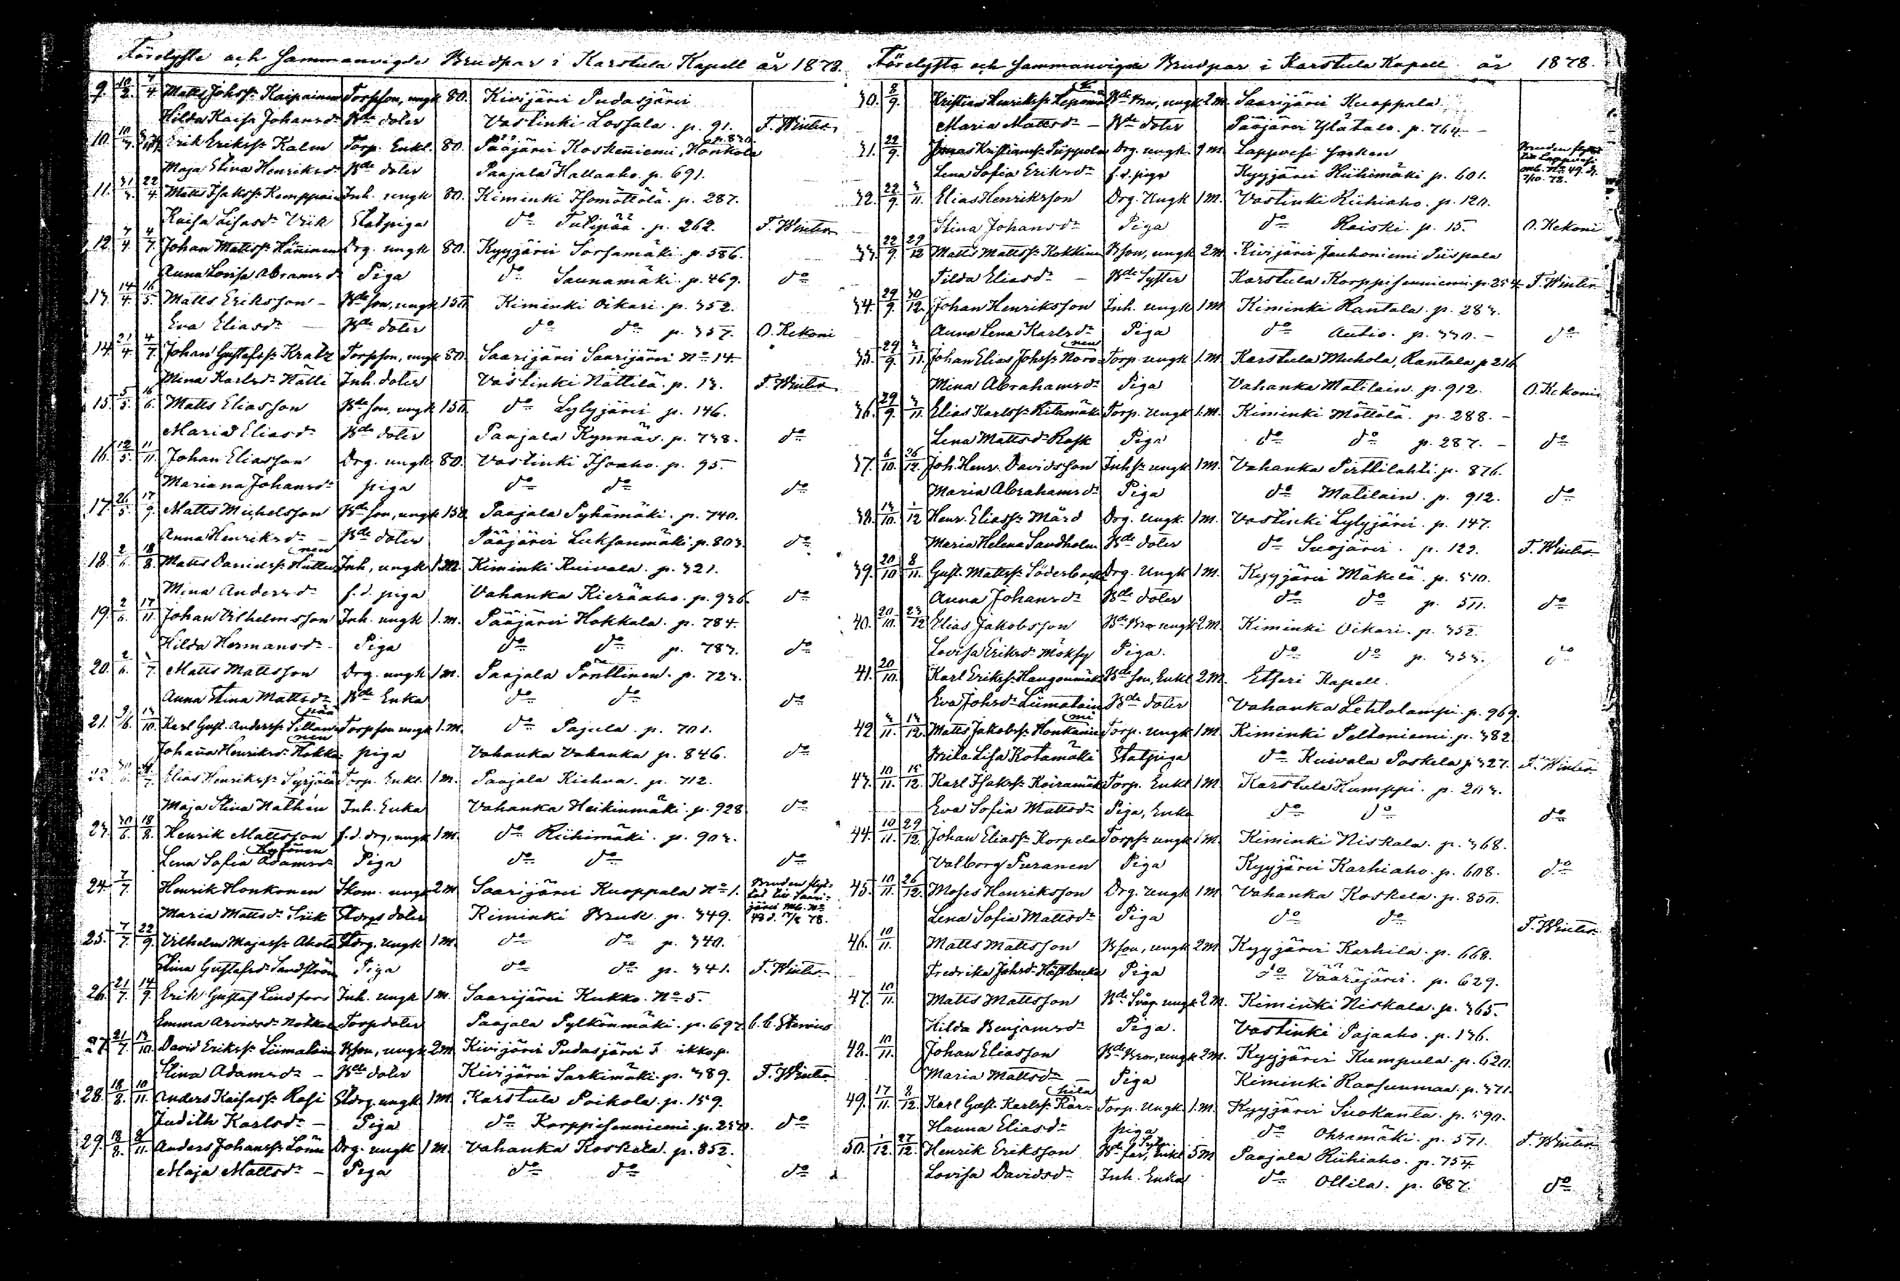 Förelyste och Sammanvigde Brudpar i Karstula Kapell år 1878.
9. 10/2. 7/4 Matts Johss. Kaipainen Torpson, ungk 80. Kivijärvi Pudasjärvi
Hilda Kaisa Johansdr Bde doter Vastinki Lossala. p. 91. F. Winter
10. Erik Erikss. Kalm Torp. Enkl. 80. Pääjärvi Koskeniemi, Honkola
Maja Stina Henriksdr Bde doter Paajala Hallaaho. p. 691.
11. 22/4 Matts Isakss. Kemppainen Inh. ungk 80. Kiminki Isomöttölä. p. 287.
Kaisa Lisasdr Vrik Statpiga do Tulipää. p. 262. F. Winter
12. 7/4 4/7. Johan Mattss. Hänninen Drg. ungk 80. Kyyjärvi Sorsamäki. p. 586.
Anna Lovisa Abramsdr Piga do Saunamäki. p. 469. do
13. 14/4 16/5. Matts Eriksson - Bde son, ungk 150. Kiminki Oikari. p. 352.
Eva Eliasdr Bde doter do do p. 357. O. Kekoni
14. 21/4 4/7. Johan Gustafss. Kratz Torpson, ungk 80. Saarijärvi Saarijärvi No 14
Mina Karlsdr Hätti Inh. doter Vastinki Nättilä. p. 13. F. Winter
15. 5/5. 16/6. Matts Eliasson Bde son, ungk 150. do Lylyjärvi p. 146.
Maria Eliasdr Bde doter Paajala Kynnäs. p. 738. do
16. 12/5. 11/11 Johan Eliasson Drg. ungk 80. Vastinki Isoaho. p. 95.
Mariana Johansdr piga do do do
17. 26/5 17/9. Matts Michelsson Bde son, ungk 150. Paajala Pyhämäki. p. 740.
Anna Henriksdr - Bde doter Pääjärvi Luksanmäki. p. 803. do
18. 2/6. 18/8. Matts Davidss. Huttunen Inh, ungk 1m. Kiminki Kuivala. p. 321.
Mina Andersdr f.d. piga Vahanka Kieräaho. p. 936. do
19. 2/6. 17/11 Johan Vilhelmsson Inh. ungk 1.m. Pääjärvi Hokkala. p. 784.
Hilda Hermansdr Piga do do p. 783. do
20. 2/6. Matts Mattsson Drg. ungk 1m. Paajala Pönttinen. p. 723.
Anna Stina Mattsdr Bde Enka do do do
21. 9/6. 13/10 Karl Gust. Anderss. Sillanpää Torpson ungk 1.m. do Pajula. p. 701.
Johana Henriksdr Hokkanen piga Vahanka Vahanka p. 846. do
Elias Henrikss. Syrjälä Torp. Enkl. 1m. Paajala Kiehva. p. 712.
Maja Stina Nathan Inh. Enka Vahanka Heikinmäki p. 928 do
23. 30/6. 18/8. Henrik Mattsson f.d. drg, ungk 1m. do Riihimäki. p. 903.
Lena Sofia Adamsdr Kytönen Piga do do do
24. 7/7. Henrik Honkonen Skom. ungk 2m. Saarijärvi Kuoppala No 1.
Maria Mattsdr Siik Stdrgs doter Kiminki Bruk. p. 349.
25. 7/7. 22/9. Vilhelm Majass. Ahola Stdrg. ungk 1m. do do p. 340.
Stina Gustafsdr Sandström Piga do do p. 341. F. Winter
26. 21/7. 14/9. Erik Gustaf Lindfors Inh. ungk 1m. Saarijärvi Kukko. No 5.
Emma Arvidsdr Torpdoter Paajala Pylkönmäki. p. 697.
27. 21/7. 13/10. David Erikss. Liimatainen Bson, ungk 2m. Kivijärvi Pudasjärvi
Stina Adamsdr - Bde doter Kivijärvi Sarkimäki. p. 389. F. Winter
28. 18/8. 10/11. Anders Kaisass. Rasi Stdrg. ungk 1m. Karstula Poikola. p. 159.
Judith Karlsdr - Piga do Korppisenniemi. p. 250. do
29. 18/8. Anders Johanss. Lönn Drg. ungk 1m. Vahanka Koskela. p. 852.
Maja Mattsdr - Piga do do do
Förelyste och Sammanvigde Brudpar i Karstula Kapell år 1878.
30. 8/9. Kristian Henrikss. Leponen Bde Bror, ungk 2m. Saarijärvi Kuoppala
Maria Mattsdr - Bde doter Pääjärvi Ylätalo. p. 764.
31. 22/9. Jonas Kristianss. Piippola Drg. ungk. 9m. Lappvesi Socken
Lena Sofia Eriksdr f.d. piga Kyyjärvi Riihimäki p. 601.
32. 22/9. 3/11. Elias Henriksson Drg. Ungk 1m. Vastinki Riihiaho. p. 120.
Stina Johansdr Piga do Raiski. p. 15. O. Kekoni
33. 22/9. 29/12 Matts Mattss. Kokkinen Bson, ungk. 2m. Kivijärvi Jauhoniemi Piispala
Tilda Eliasdr - Bde Syster Karstula Korppisenniemi. p. 254 F. Winter
34. 29/9. 30/12. Johan Henriksson Inh. ungk 1m. Kiminki Rantala. p. 283.
Anna Lena Karlsdr Piga do Autio. p. 330. - do
35. 29/9. 3/11. Johan Elias Johss. Noronen Torp. ungk 1.m. Karstula Muhola, Rantala p 216
Mina Abrahamsdr Piga Vahanka Matilain. p. 912. O. Kekoni
36. 29/9. 3/11. Elias Karlss. Ritamäki Torp. Ungk 1.m. Kiminki Möttölä. p. 288. -
Lena Mattsdr Rask Piga do do p. 287. - do
37. 6/10. 26/12. Joh. Henr. Davidsson Inhss ungk 1m. Vahanka Pirttilahti p. 876.
Maria Abrahamsdr Piga do Matilain. p. 912. do
38. 13/10. 1/12 Henr. Eliass. Mård Drg. Ungk. 1m. Vastinki Lylyjärvi. p. 147.
Maria Helena Sandholm Bde doter do Suojärvi. p. 123. F. Winter
39. 20/10 8/11. Gust. Mattss. Söderback Drg. Ungk 1m. Kyyjärvi Mäkelä. p. 510.
Anna Johansdr Bde doter do do p. 511. do
40. 20/10. 23/12 Elias Jakobsson Bde Bror ungk 2m. Kiminki Oikari. p. 352.
Lovisa Eriksdr Möksy Piga. do do p. 353. do
41. 20/10. Karl Erikss. Hangonmäki Bde son, Enkl 2m. Etseri Kapell.
Eva Johsdr Liimatain Bde doter Vahanka Lehtolampi. p. 969.
42. 3/11. 13/12. Matts Jakobss. Honkaniemi Torp. Ungk 1m. Kiminki Peltoniemi. p. 382
Brita Lisa Kotamäki Statpiga do Kuivala Poskela p 327. F. Winter
43. 10/11. 15/12. Karl Isakss. Koiramäki Torp. Enkl 1m. Karstula Kumppi. p. 203.
Eva Sofia Mattsdr Piga, Enka do do do
44. 10/11. 29/12. Johan Eliass. Korpela Torps. ungk 1m. Kiminki Niskala. p. 368.
Valborg Puranen Piga Kyyjärvi Karhiaho. p. 608. do
45. 10/11 26/12. Moses Henriksson Drg. ungk 1m Vahanka Koskela. p. 850.
Lena Sofia Mattsdr Piga do do F. Winter
46. 10/11. Matts Mattsson Bson, ungk 2m Kyyjärvi Karhila. p. 668.
Fredrika Johsdr Hästbacka Piga do Vääräjärvi. p. 629.
47. 10/11. Matts Mattsson Bde Svåg. ungk 2m. Kiminki Niskala. p. 365.
Hilda Benjamsdr Piga. Vastinki Pajaaho. p. 136.
48. 10/11. Johan Eliasson Bde Bror, ungk 2m. Kyyjärvi Kumpula. p. 620.
Maria Mattsdr Piga Kiminki Raasuumaa. p. 371.
49. 17/11. 8/12. Karl Gust. Karlss. Karhila Torp. Ungk. 1.m. Kyyjärvi Suokanta. p. 590.
Hanna Eliasdr piga do Ohramäki. p. 571. F. Winter
50. 1/12. 27/12. Henrik Eriksson Bde far, Enkl 5m Paajala Riihiaho. p. 754
Lovisa Davidsdr Inh. Enka do Ollila. p. 687. do